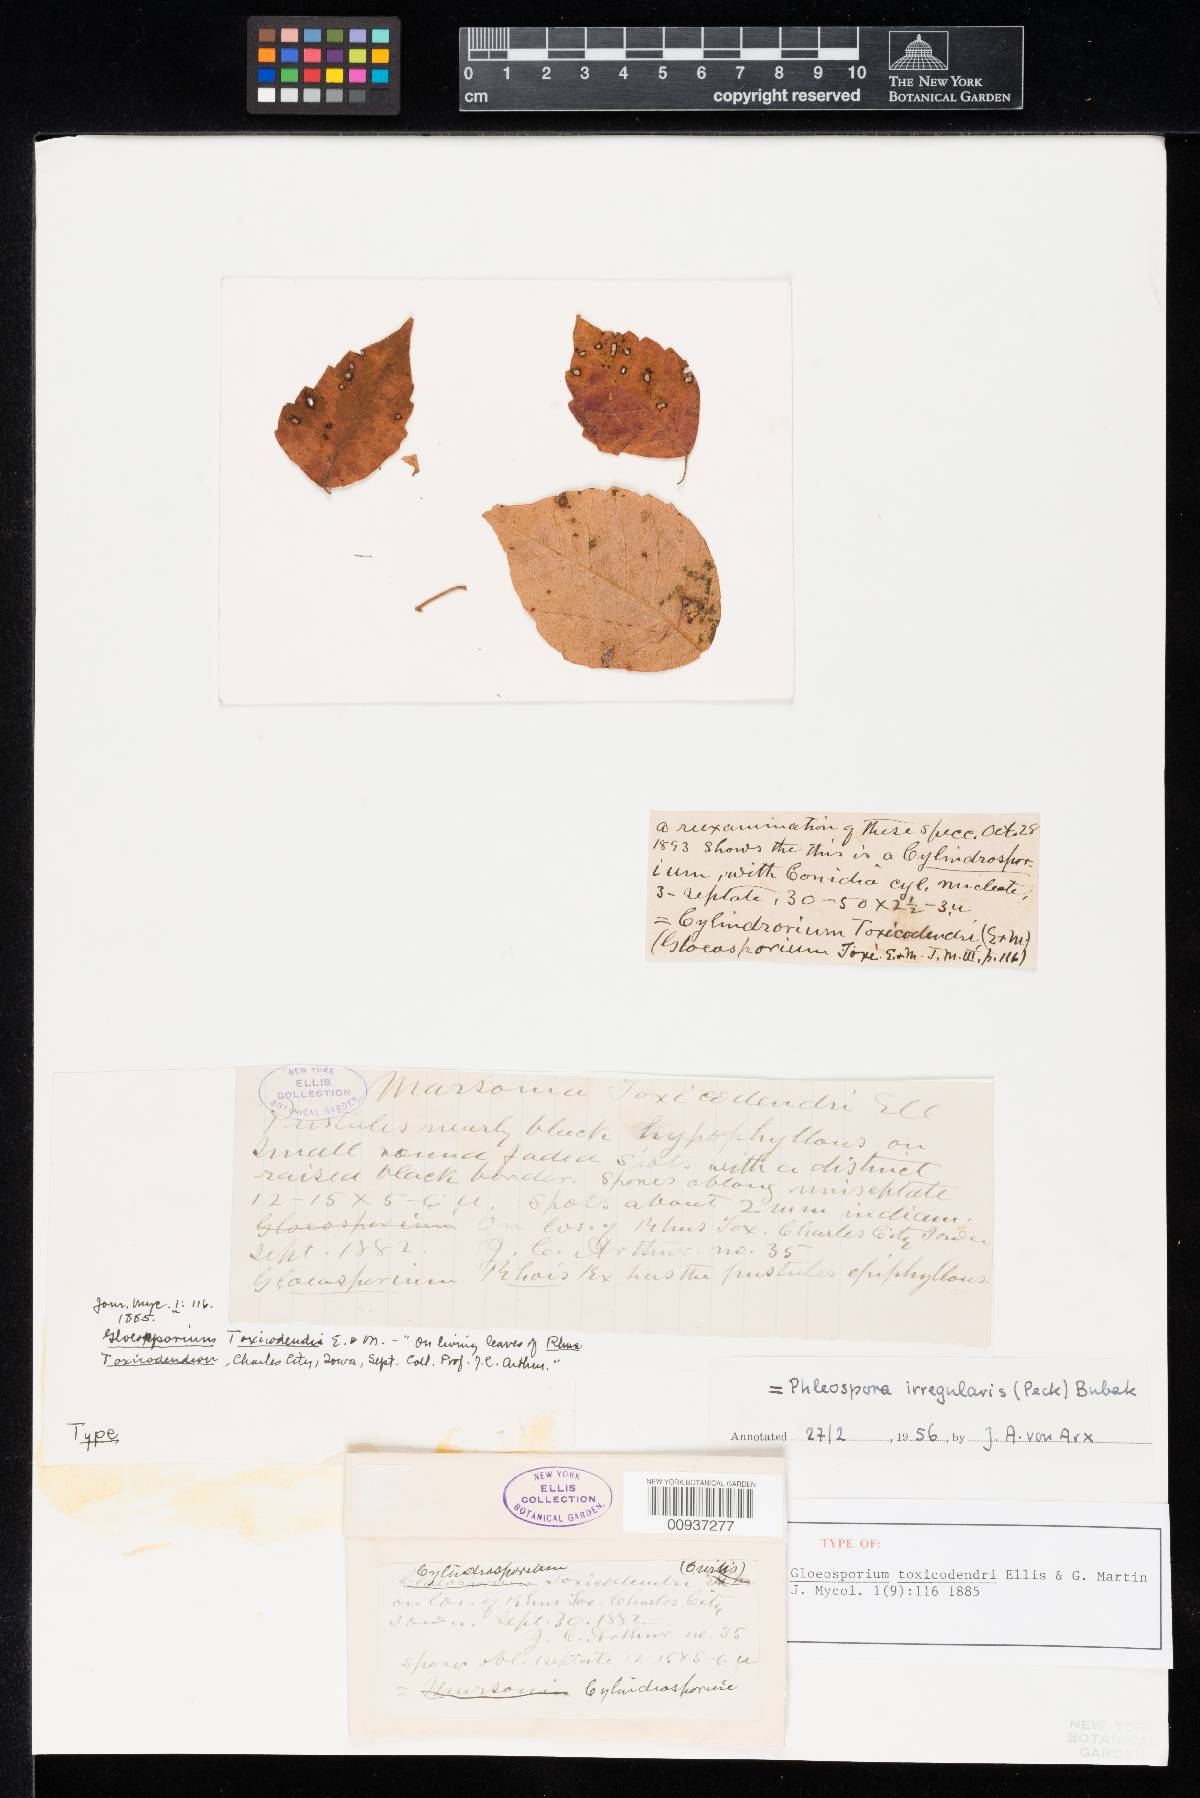 0 1 2 3 4 5 6 7 8 9 10
cm
copyright reserved
THE NEW YORK
BOTANICAL GARDEN
a reexamination of these spec. Oct. 28
1893 shows the this is a Cylindrospor-
ium, with Conidia cyl, nucleate,
3-septate, 30-50 x 2½-3 µ
= Cylindrorium Toxicodendri (E&M)
(Gloeosporium Toxi. E&M. J.M. III, p. 116)
NEW YORK
ELLIS
COLLECTION
BOTANICAL GARDEN.
Marsonia Toxicodendri Ell
Pustules nearly black hypophyllous on
small round faded spots with a distinct
raised black border. Spores oblong uniseptate
12-15 x 5-6 µ. Spots about 2 mm in diam.
Gloeosporium On lvs. of Rhus Tox. Charles City Iowa
Sept. 1882. J. C. Arthur. no. 35
Gloeosporium Rhois has the pustules epiphyllous.
Jour. Myc. 1: 116.
1885.
Gloeosporium Toxicodendri E. & M. - "On living leaves of Rhus
Toxicodendron, Charles City, Iowa, Sept. Coll. Prof. J.C. Arthur."
Type
= Phleospora irregularis (Peck) Bubak
Annotated 27/2, 1956, by J. A. von Arx
NEW YORK
ELLIS
COLLECTION
BOTANICAL GARDEN.
NEW YORK BOTANICAL GARDEN
00937277
TYPE OF:
Gloeosporium toxicodendri Ellis & G. Martin
J. Mycol. 1(9):116 1885
Cylindrosporium
Toxicodendri
on lvs. of Rhus Tox. Charles City
Iowa. Sept. 30. 1882
J. C. Arthur no. 35
spores obl. 1 septate 12-15 x 5-6 µ
= Marsonia
NEW YORK
BOTANICAL
GARDEN